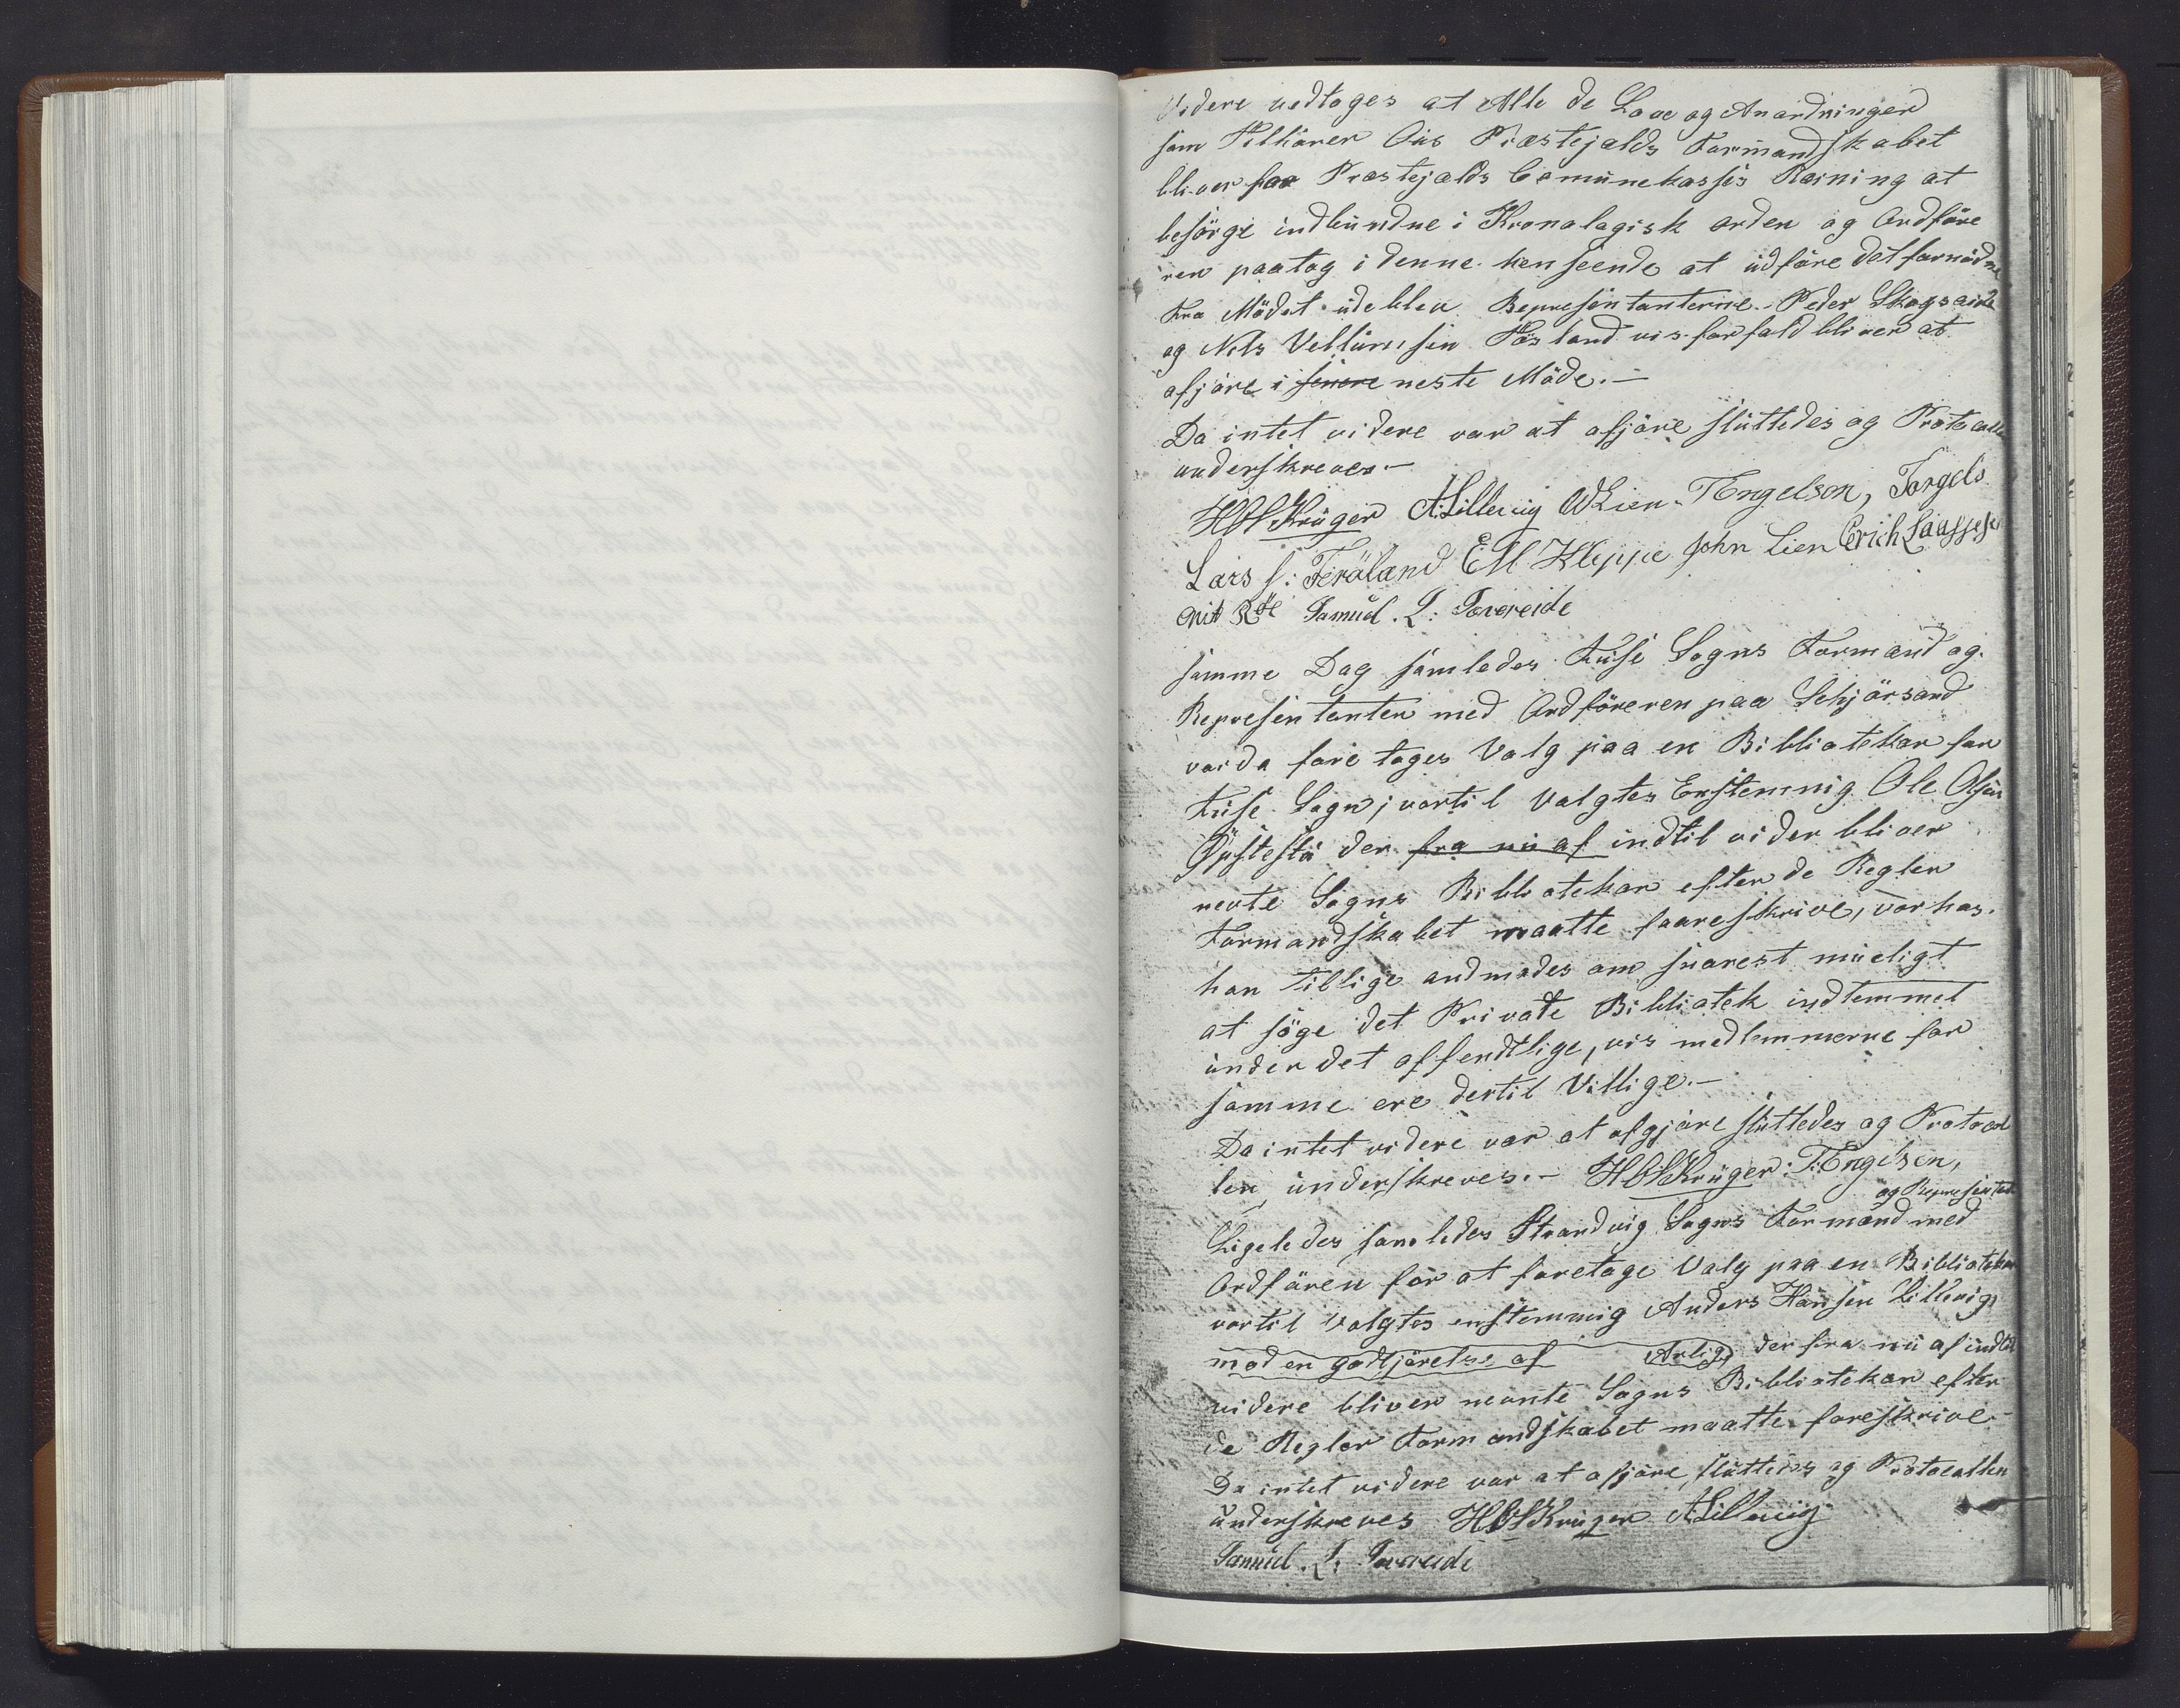 Videre vedtoges at Alle de Love og Anordninger
som Tilhører Ous Præstejælds Formandskabet
bliver paa Præstejælds Comunekasses Ræining at
besørge indbundne i Kronalogisk orden og Ordføre
ren paatog i denne henseende at udføre det fornødne
Fra Mødet udeblev Represintanterne Peder Skogseide
og Nils Villumsen Høsland vis forfald bliver at
afjøre i senere neste Møde.-
Da intet videre var at afjøre sluttedes og Protocolle
underskreves.-
HOSKrüger ALillevig WLien TEngelson, Torgels
Lars J: Teräland EM Kleppe John Lien Erich
Samuel. L: Tvereide
samme Dag samledes Fuse Sogns Formand og
Represintanter med Ordføreren paa Schjørsand
vorda foretoges Valg paa en Bibliotekar for
Fuse Sogn; vortil valgtes Enstemmig Ole Olsen
der fra nu af indtil vider bliver
nevnte Sogns Bibliotekar efter de Regler
Formandskabet maatte foareskrive, vorhos
han tillige andmodes om snarest mueligt
at søge det Private Bibliotek indlemmet
under det offendtlige, vis medlemmerne for
samme ere dertil Villige.-
Da intet videre var at afgjøre sluttedes og Protocol
len underskreves.- HOSKrüger: T:Engelsen,
og Represintant
Ligeledes samledes Strandvig Sogns Formand med
Ordføren for at foretage Valg paa en Bibliotekar
vortil valgtes enstemmig Anders Hansen Lillevig
mod en godtjørelse af Arlig, der fra nu af indtil
videre bliver nevnte Sogns Bibliotekar efter
de Regler Formandskabet maatte foreskrive-
Da intet videre var at afjøre, sluttedes og Protocollen
underskreves HOSKrüger ALillevig
Samuel. L: Tvereide